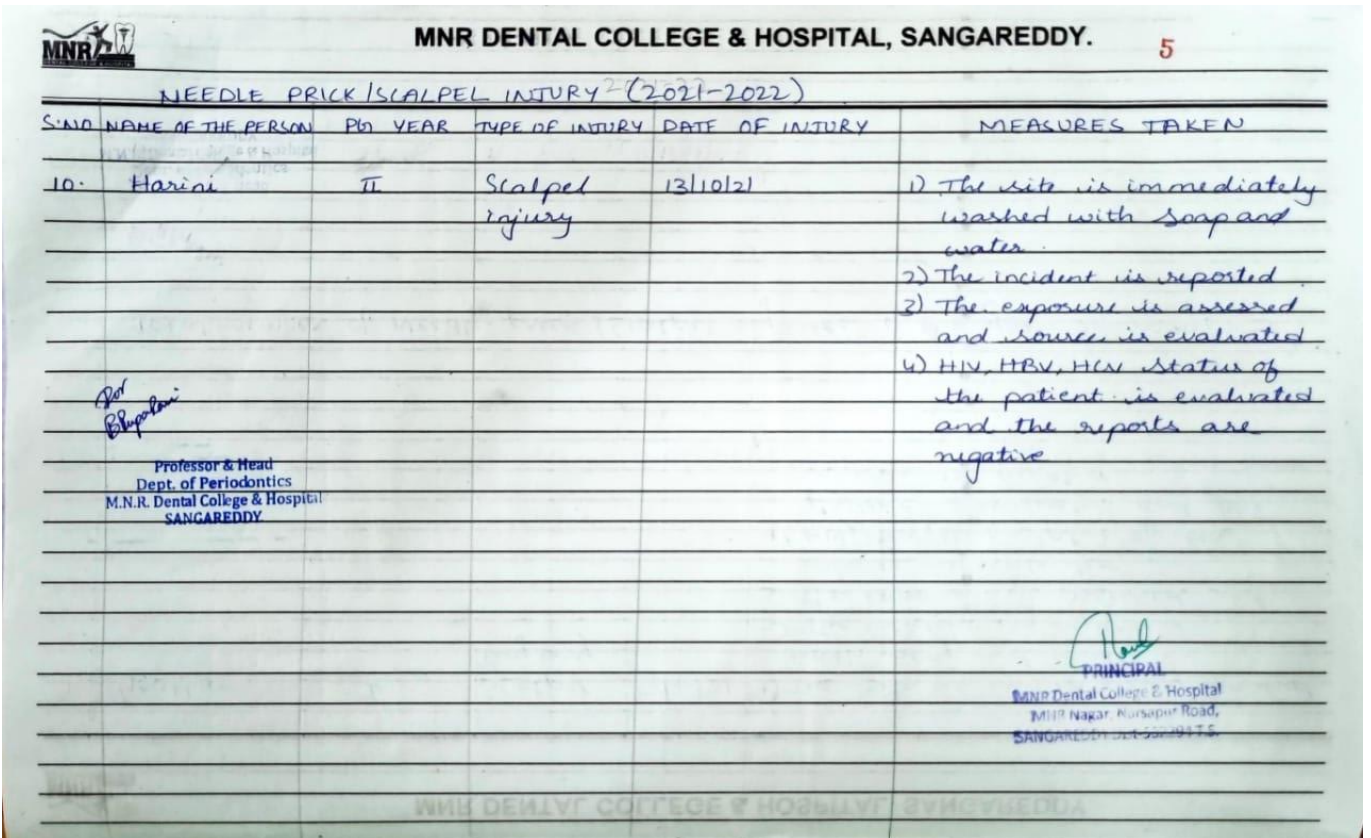 MNR
MNR DENTAL COLLEGE & HOSPITAL, SANGAREDDY.
5
NEEDLE PRICK/SCALPEL INJURY (2021-2022)
S.NO NAME OF THE PERSON PG YEAR TYPE OF INJURY DATE OF INJURY MEASURES TAKEN
10. Harini II Scalpel 13/10/21 1) The site is immediately
injury washed with soap and
water.
2) The incident is reported
3) The exposure is assessed
and source is evaluated
4) HIV, HBV, HCV Status of
the patient is evaluated
and the reports are
negative
Professor & Head
Dept. of Periodontics
M.N.R. Dental College & Hospital
SANGAREDDY.
PRINCIPAL
MNR Dental College & Hospital
MNR Nagar, Narsapur Road,
SANGAREDDY